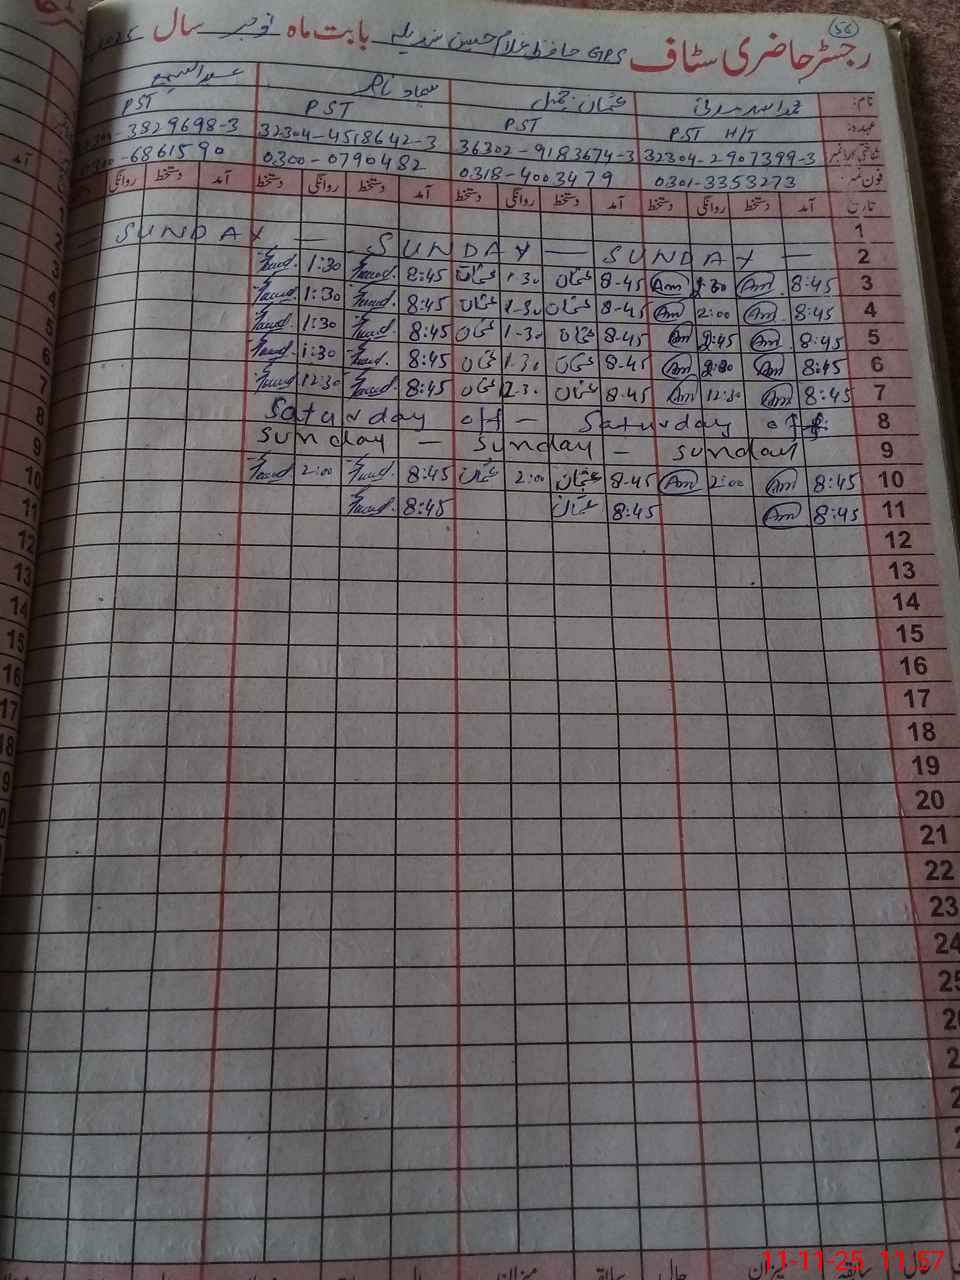 56
رجسٹر حاضری سٹاف GPS حافظ غلام حسین بابت ماہ نومبر سال 2025
نام: عثمان جمیل عبدالسمیع
عہدہ: PST H/T PST PST PST
شناختی کارڈ نمبر 32304-2907399-3 36302-9183674-3 32304-4518642-3 3829698-3
فون نمبر: 0301-3353273 0318-4003479 0300-0790482 6861590
تاریخ آمد دستخط روانگی دستخط آمد دستخط روانگی دستخط آمد دستخط روانگی دستخط آمد دستخط روانگی
1
2 SUNDAY — SUNDAY — SUNDAY —
3 8:45 Am Am 8-45 عثمان 1-30 عثمان 8:45 1:30
4 8:45 Am 2:00 Am 8-45 عثمان 1-30 عثمان 8:45 1:30
5 8:45 Am 2:45 Am 8-45 عثمان 1-30 عثمان 8:45 1:30
6 8:45 Am Am 8-45 عثمان 1-30 عثمان 8:45 1:30
7 8:45 Am 12:30 Am 8-45 عثمان 12-30 عثمان 8:45 12:30
8 Saturday off — Saturday off
9 Sunday — Sunday — Sunday
10 8:45 Am 2:00 Am 8-45 عثمان 2:00 عثمان 8:45 2:00
11 8:45 Am 8:45 عثمان 8:45
12
13
14
15
16
17
18
19
20
21
22
23
24
25
میزان حالی سابقہ میزان
11-11-25 11:57